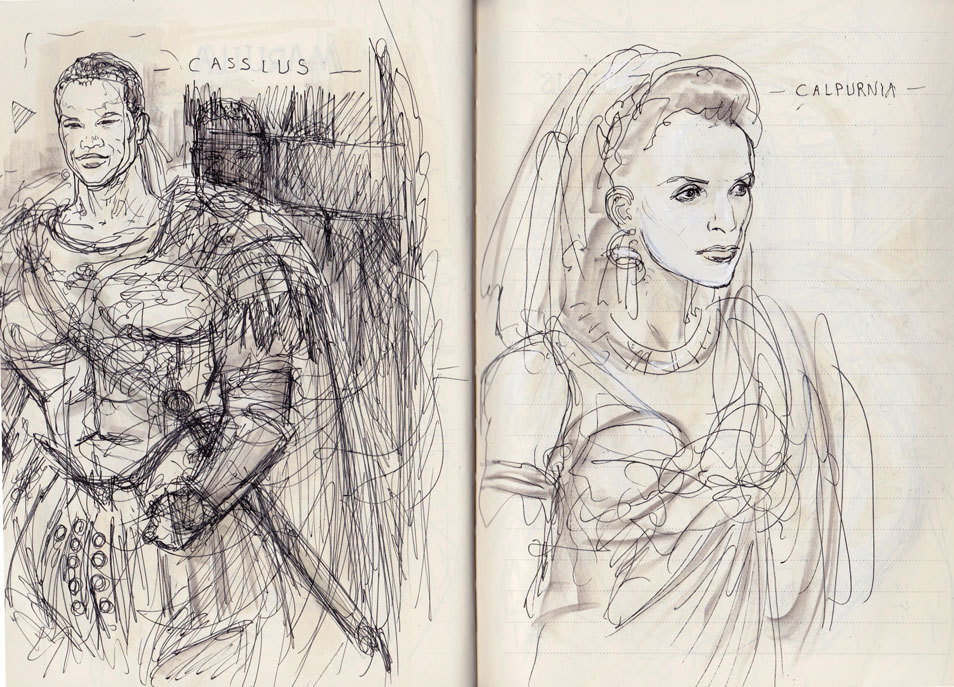 — CASSIUS —
— CALPURNIA —